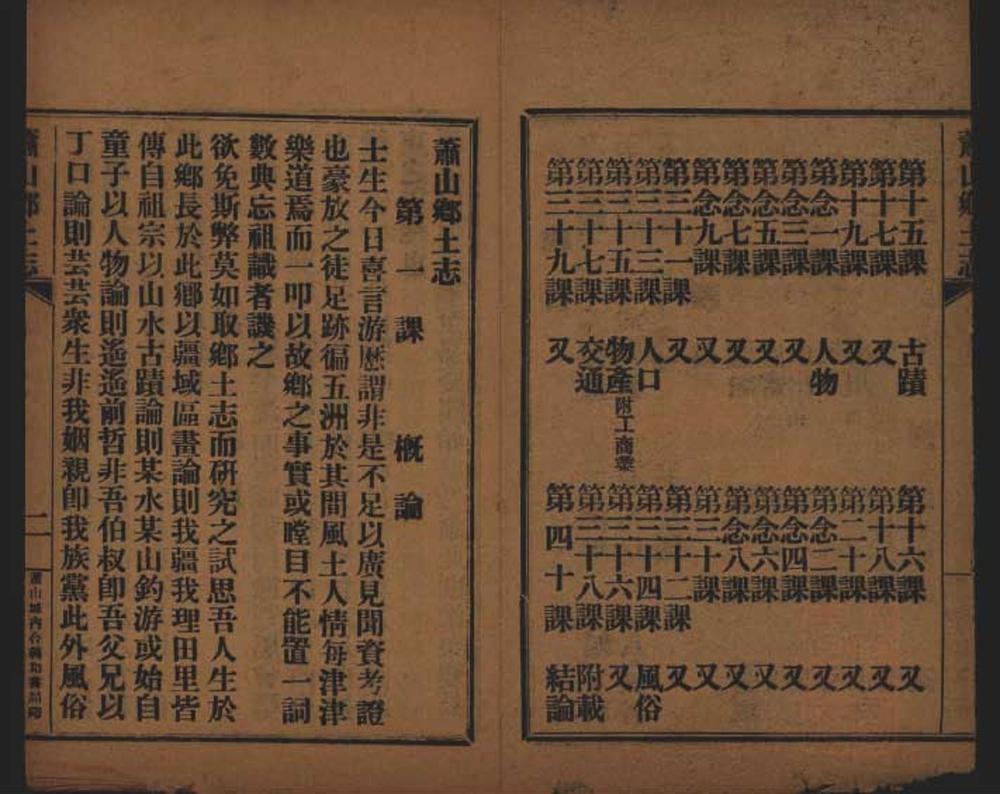 第十五課 古蹟 第十六課 又
第十七課 又 第十八課 又
第十九課 又 第二十課 又
第念一課 人物 第念二課 又
第念三課 又 第念四課 又
第念五課 又 第念六課 又
第念七課 又 第念八課 又
第念九課 又 第三十課 又
第三十一課 又 第三十二課 又
第三十三課 人口 第三十四課 風俗
第三十五課 物產附工商業 第三十六課 又
第三十七課 交通 第三十八課 附載
第三十九課 又 第四十課 結論
蕭山鄉土志
第一課 概論
士生今日喜言游歷謂非是不足以廣見聞資考證
也豪放之徒足跡徧五洲於其間風土人情每津津
樂道焉而一叩以故鄉之事實或瞠目不能置一詞
數典忘祖識者譏之
欲免斯弊莫如取鄉土志而研究之試思吾人生於
此鄉長於此鄉以疆域區畫論則我疆我理田里皆
傳自祖宗以山水古蹟論則某水某山釣游或始自
童子以人物論則遙遙前哲非吾伯叔卽吾父兄以
丁口論則芸芸衆生非我姻親卽我族黨此外風俗
蕭山鄉土志
二